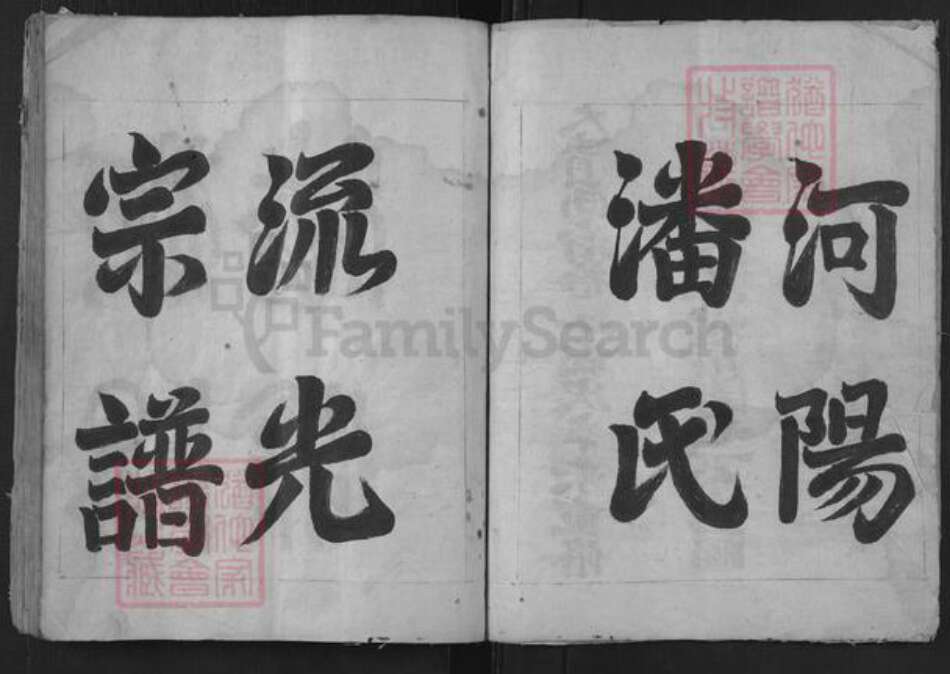 河陽
潘氏
流光
宗譜
FamilySearch